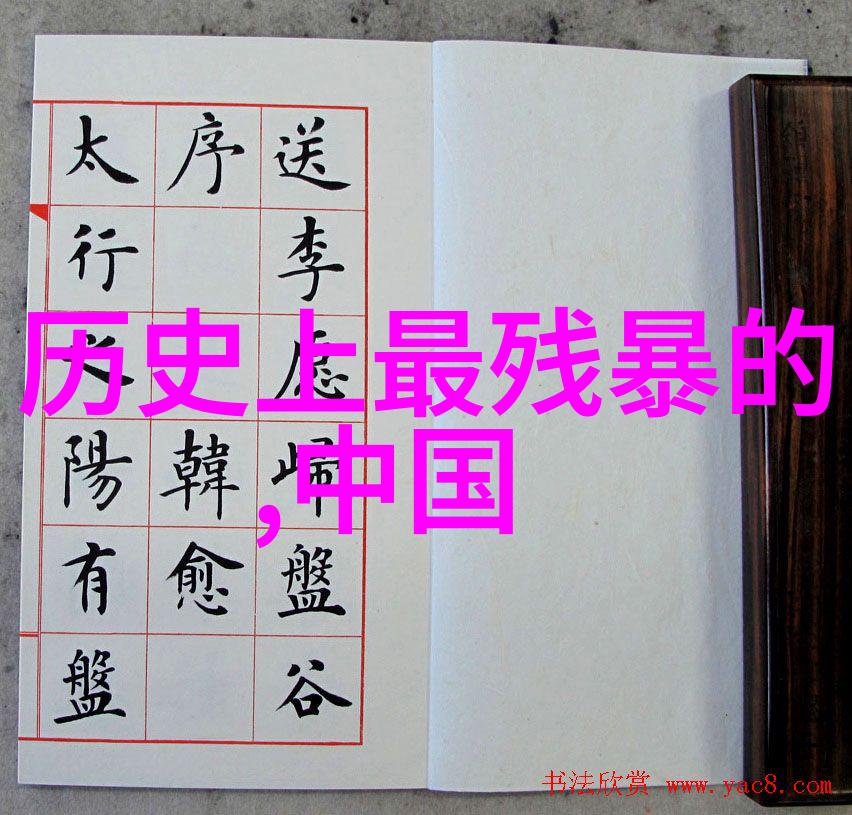 送李愿歸盤谷
序 韓愈
太行之陽有盤
历史上最残暴的
,中国
书法欣赏 www.yac8.com